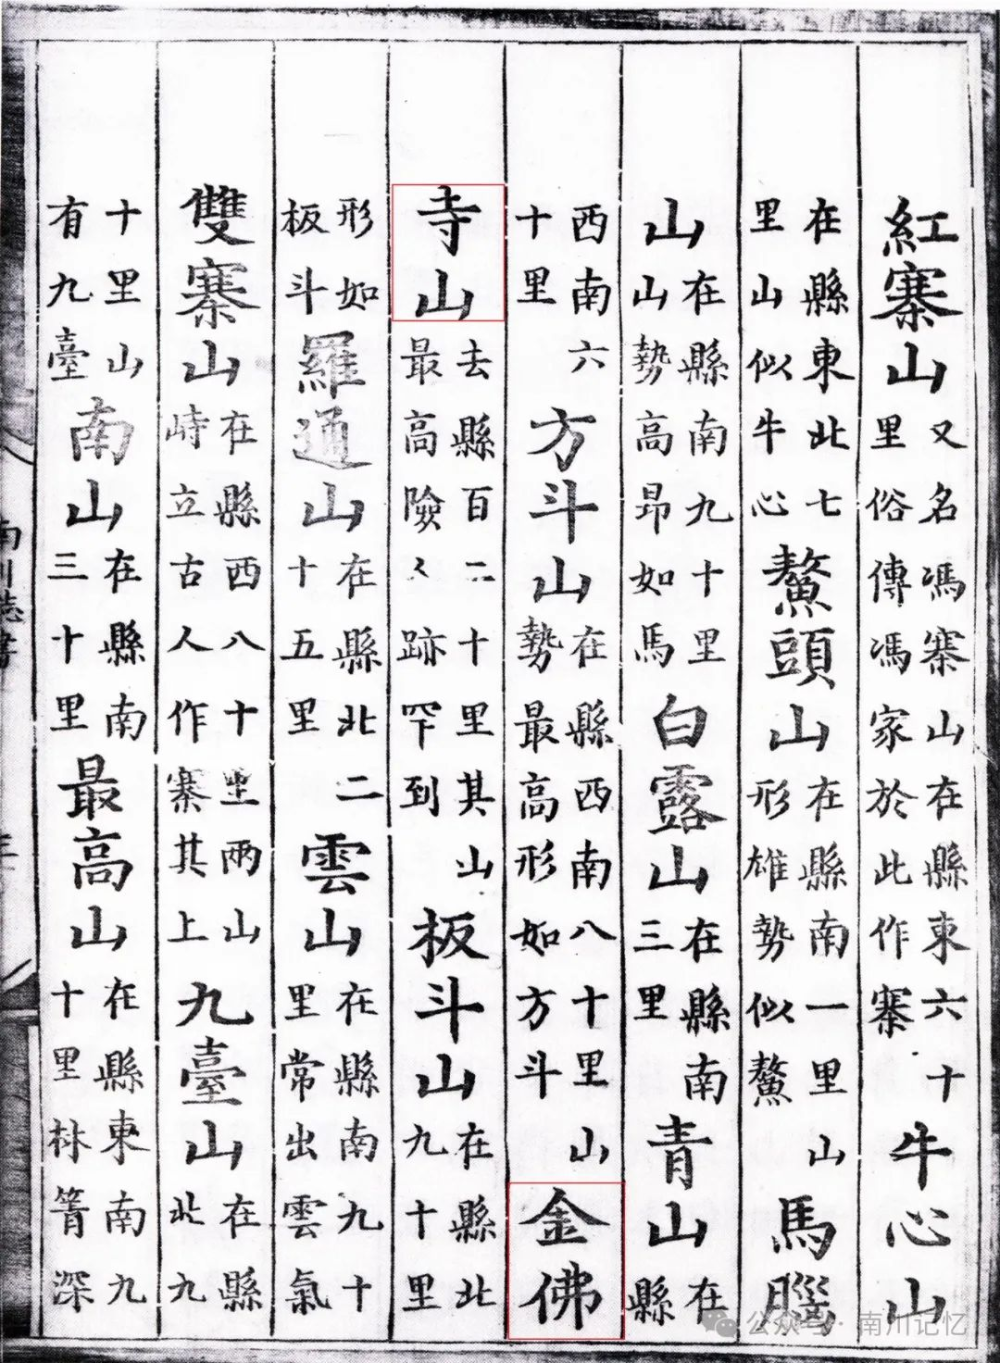 紅寨山又名馮寨山在縣東六十里俗傳馮家於此作寨牛心山
在縣東北七里山似牛心鰲頭山在縣南一里山形雄勢似鰲馬腦
山在縣南九十里山勢高昻如馬白露山在縣南三里青山在縣
西南六十里方斗山在縣西南八十里山勢最高形如方斗金佛
寺山去縣百二十里其山最高險人跡罕到板斗山在縣北九十里
形如板斗羅通山在縣北二十五里雲山在縣南九十里常出雲氣
雙寨山在縣西八十里兩山峙立古人作寨其上九臺山在縣北九
十里山有九臺南山在縣南三十里最高山在縣東南九十里林箐深
南川志書
公众号·南川记忆